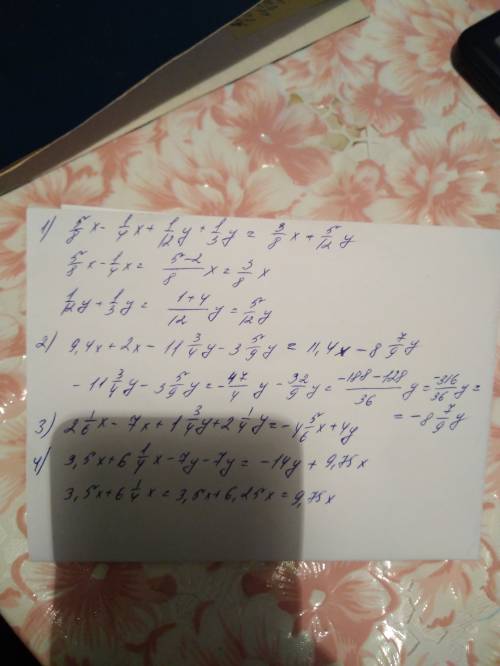 1) 5/8 x - 1/4 x + 1/12 y + 1/3 y = 3/8 x + 5/12 y
5/8 x - 1/4 x = (5-2)/8 x = 3/8 x
1/12 y + 1/3 y = (1+4)/12 y = 5/12 y
2) 9,4x + 2x - 11 3/4 y - 3 5/9 y = 11,4x - 8 7/9 y
- 11 3/4 y - 3 5/9 y = - 47/4 y - 32/9 y = (-188-128)/36 y = -316/36 y =
= -8 7/9 y
3) 2 1/6 x - 7x + 1 3/4 y + 2 1/4 y = -4 5/6 x + 4y
4) 3,5x + 6 1/4 x - 7y - 7y = -14y + 9,75x
3,5x + 6 1/4 x = 3,5x + 6,25x = 9,75x